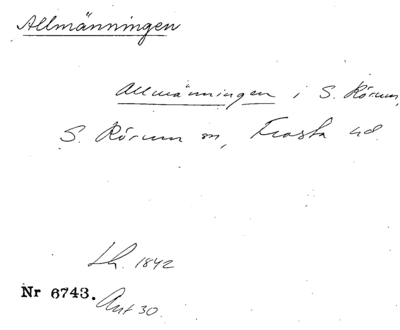 Allmänningen
Allmänningen i S. Rörum,
S. Rörum sn, Frosta hd.
Lh. 1842
Nr 6743.
Ant 30.